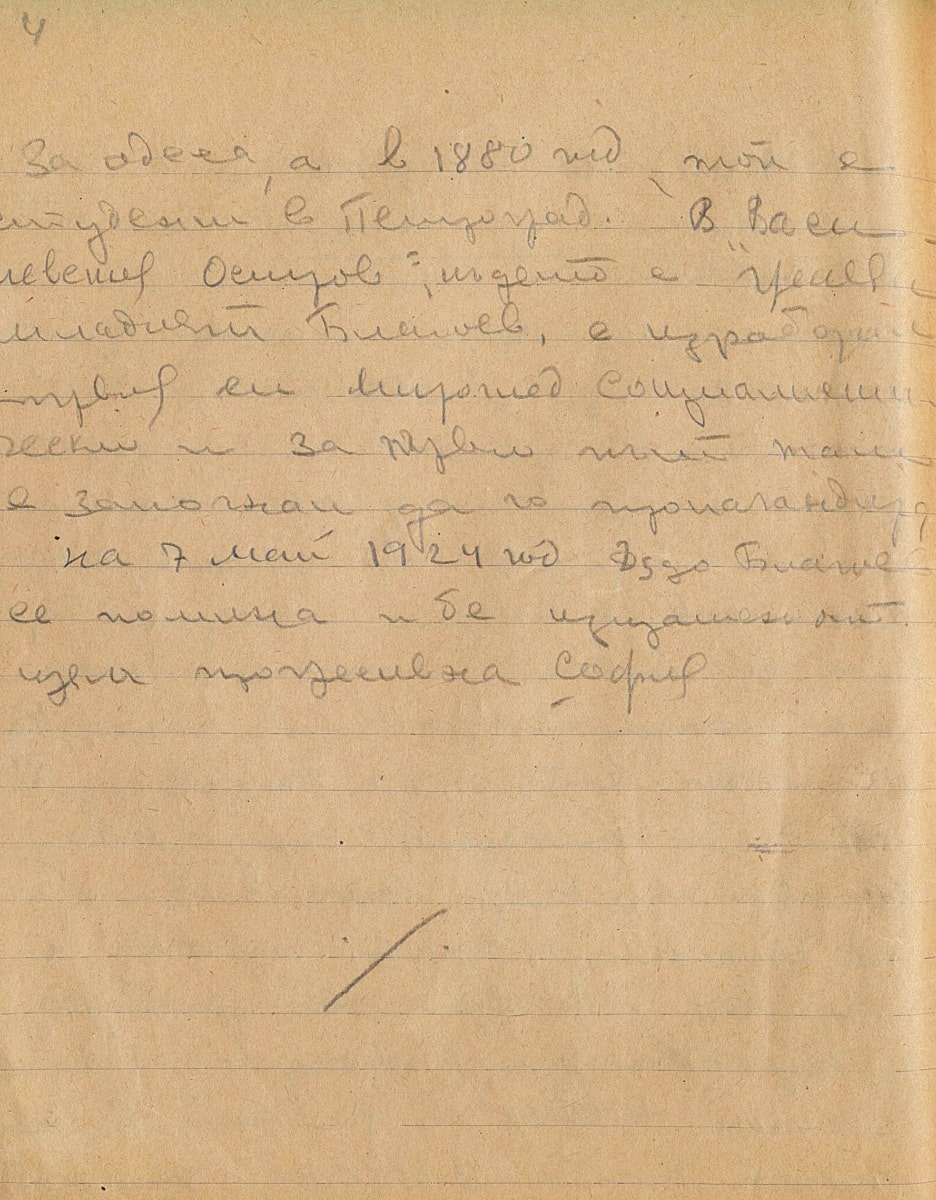 4
За одеса, а в 1880 год той е
студент в Петроград. В "Васи
левския Остров", където е живял
младият Благоев, е изработил
първия си мироглед социалисти
чески и за първи път там
е започнал да го пропагандира
на 7 май 1924 год Дядо Благоев
се помина и бе изпратен от
цяла прогресивна София